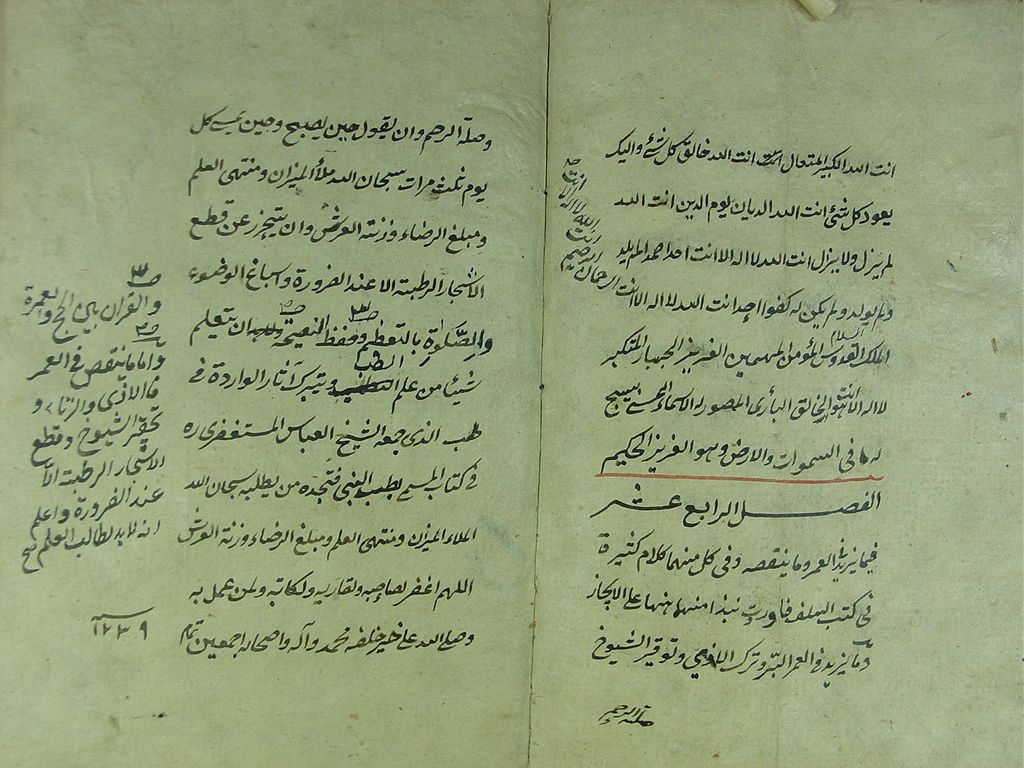 انت الله الكبير المتعال انت الله خالق كل شئ واليك
يعود كل شئ انت الله الديان يوم الدين انت الله
لم يزل ولا يزال انت الله لا اله الا انت احدا صمدا لم يلد
ولم يولد ولم يكن له كفوا احد انت الله لا اله الا انت
الرحمان الرحيم انت الله لا اله الا انت
الملك القدوس السلام المؤمن المهيمن العزيز الجبار المتكبر
لا اله الا انت الخالق البارى المصور له الاسماء الحسنى يسبح
له ما فى السموات والارض وهو العزيز الحكيم
الفصل الرابع عشر
فيما يزيد فى العمر وما ينقصه وفى كل منهما كلام كثيرة
فى كتب السلف فاوردت نبذا منها هنها على الايجاز
وما يزيد فى العمر البر وترك الاذى وتوقير الشيوخ
وصلة الرحم
وصلة الرحم وان يقول حين يصبح وحين يمسى كل
يوم ثلث مرات سبحان الله ملأ الميزان ومنتهى العلم
ومبلغ الرضاء وزنة العرش وان يتحرز عن قطع
الاشجار الرطبة الا عند الضرورة واسباغ الوضوء
والصلوة بالتعظيم وحفظ الصحة ان يتعلم
شيئا من علم الطب ويتبرك آثار الواردة فى
طب الذى جمعه الشيخ العباس المستغفرى ره
فى كتاب المسمى بطب النبى فتجده من يطلبه سبحان الله
الملاء الميزان ومنتهى العلم ومبلغ الرضاء وزنة العرش
اللهم اغفر لصاحبه ولقاريه ولكاتبه ولمن عمل به
وصلى الله على خير خلقه محمد وآله واصحابه اجمعين تمام
سنه ١٢٣٩
والقران بين الحج والعمرة
واما ما ينقص فى العمر
فالاذى والزناء و
تحقير الشيوخ وقطع
الاشجار الرطبة الا
عند الضرورة واعلم
انه لا بد لطالب العلم